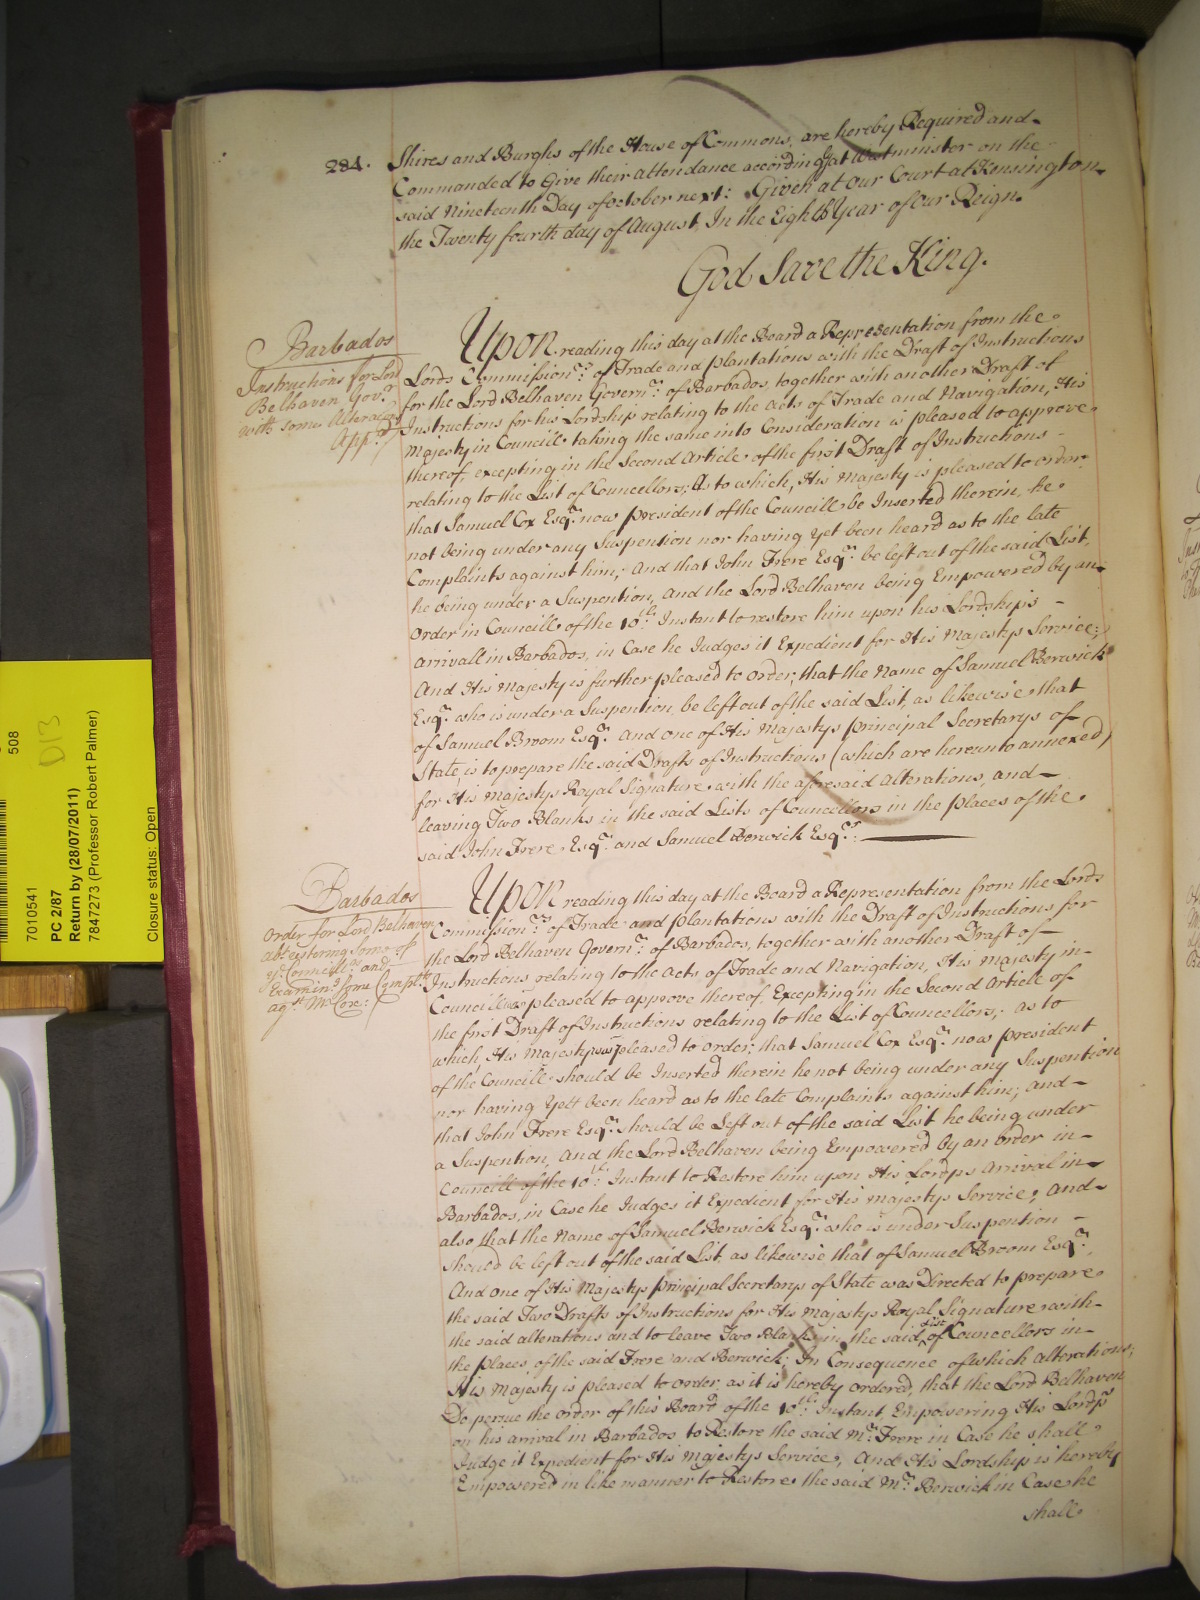 284.
Shires and Burghs of the House of Commons, are hereby Required and
Commanded to Give their attendance accordingly at Westminster on the
said Nineteenth Day of October next: Given at our Court at Kensington
the Twenty fourth day of August, In the Eighth Year of our Reign.
God Save the King.
Barbados
Instructions for Lord
Belhaven Gov.r
with some Alterac͠ons
App.d
Upon reading this day at the Board a Representation from the
Lords Commission.rs of Trade and plantations with the Draft of Instructions
for the Lord Belhaven Govern.r of Barbados together with another Draft of
Instructions for his Lordship relating to the Acts of Trade and Navigation, His
Majesty in Councill taking the same into Consideration is pleased to approve
thereof, excepting in the Second Article of the first Draft of Instructions
relating to the List of Councellors; As to which, His Majesty is pleased to order
that Samuel Cox Esq.r now president of the Councill be Inserted therein, he
not being under any Suspention nor having Yet been heard as to the late
Complaints against him; And that John Frere Esq.r be left out of the said List,
he being under a Suspention, and the Lord Belhaven being Empowered by an
order in Councill of the 10.th Instant to restore him upon his Lordships
arrivall in Barbados, in Case he Judges it Expedient for His Majestys Service;
And His Majesty is further pleased to order; that the Name of Samuel Berwick
Esq.r who is under a Suspention, be left out of the said List, as likewise that
of Samuel Broom Esq.r And one of His Majestys principal Secretarys of
State, is to prepare the said Drafts of Instructions (which are hereunto annexed)
for His Majestys Royal Signature with the aforesaid alterations, and
leaving Two Blanks in the said Lists of Councellors in the places of the
said John Frere Esq.r and Samuel Berwick Esq.r
Barbados
Order for Lord Belhaven
ab.t restoring some of
y.e Councill.rs and
Examin.g some Compl.ts
ag.st M.r Cox:
Upon reading this day at the Board a Representation from the Lords
Commission.rs of Trade and plantations with the Draft of Instructions for
the Lord Belhaven Govern.r of Barbados, together with another Draft of
Instructions relating to the Acts of Trade and Navigation, His Majesty in
Councill was pleased to approve thereof, Excepting in the Second Article of
the first Draft of Instructions relating to the List of Councellors; as to
which, His Majesty was pleased to order; that Samuel Cox Esq.r now president
of the Councill should be Inserted therein he not being under any Suspention
nor having Yett been heard as to the late Complaints against him; and
that John Frere Esq.r should be Left out of the said List he being under
a Suspention, and the Lord Belhaven being Empowered by an order in
Councill of the 10.th Instant to Restore him upon His Lordps arrival in
Barbados, in Case he Judges it Expedient for His Majestys Service; and
also that the Name of Samuel Berwick Esq.r who is under Suspention
should be left out of the said List, as likewise that of Samuel Broom Esq.r
And one of His Majestys principal Secretarys of State was Directed to prepare
the said Two Drafts of Instructions for His Majestys Royal Signature with
the said alterations and to leave Two Blanks in the said List of Councellors in
the places of the said Frere and Berwick; In Consequence of which alterations;
His Majesty is pleased to order, as it is hereby ordered, that the Lord Belhaven
Do persue the order of this Board of the 10.th Instant, Empowering His Lordp.s
on his arrival in Barbados to Restore the said M.r Frere in Case he shall
Judge it Expedient for His Majestys Service; And His Lordship is hereby
Empowered in like manner to Restore the said M.r Berwick in Case he
shall
508
D13
7010541
PC 2/87
Return by (28/07/2011)
7847273 (Professor Robert Palmer)
Closure status: Open